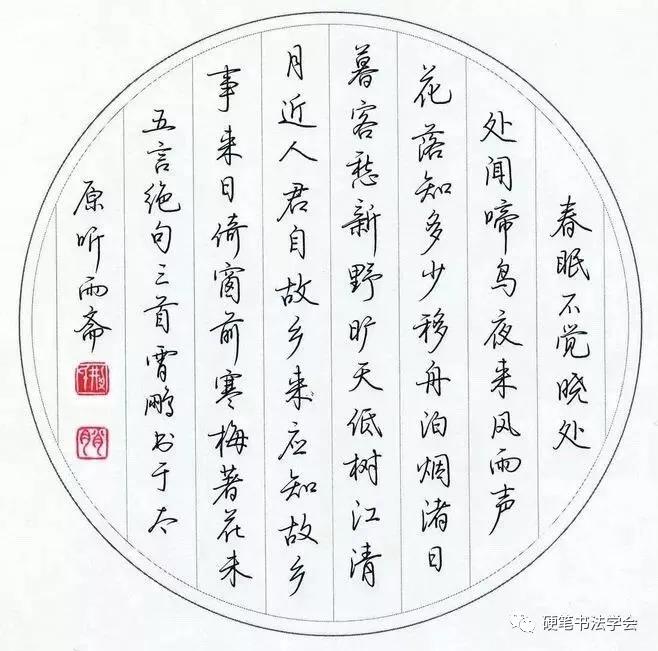 春眠不觉晓处
处闻啼鸟夜来风雨声
花落知多少移舟泊烟渚日
暮客愁新野旷天低树江清
月近人君自故乡来应知故乡
事来日倚窗前寒梅著花未
五言绝句三首霄鹏书于太
原听雨斋
硬笔书法学会